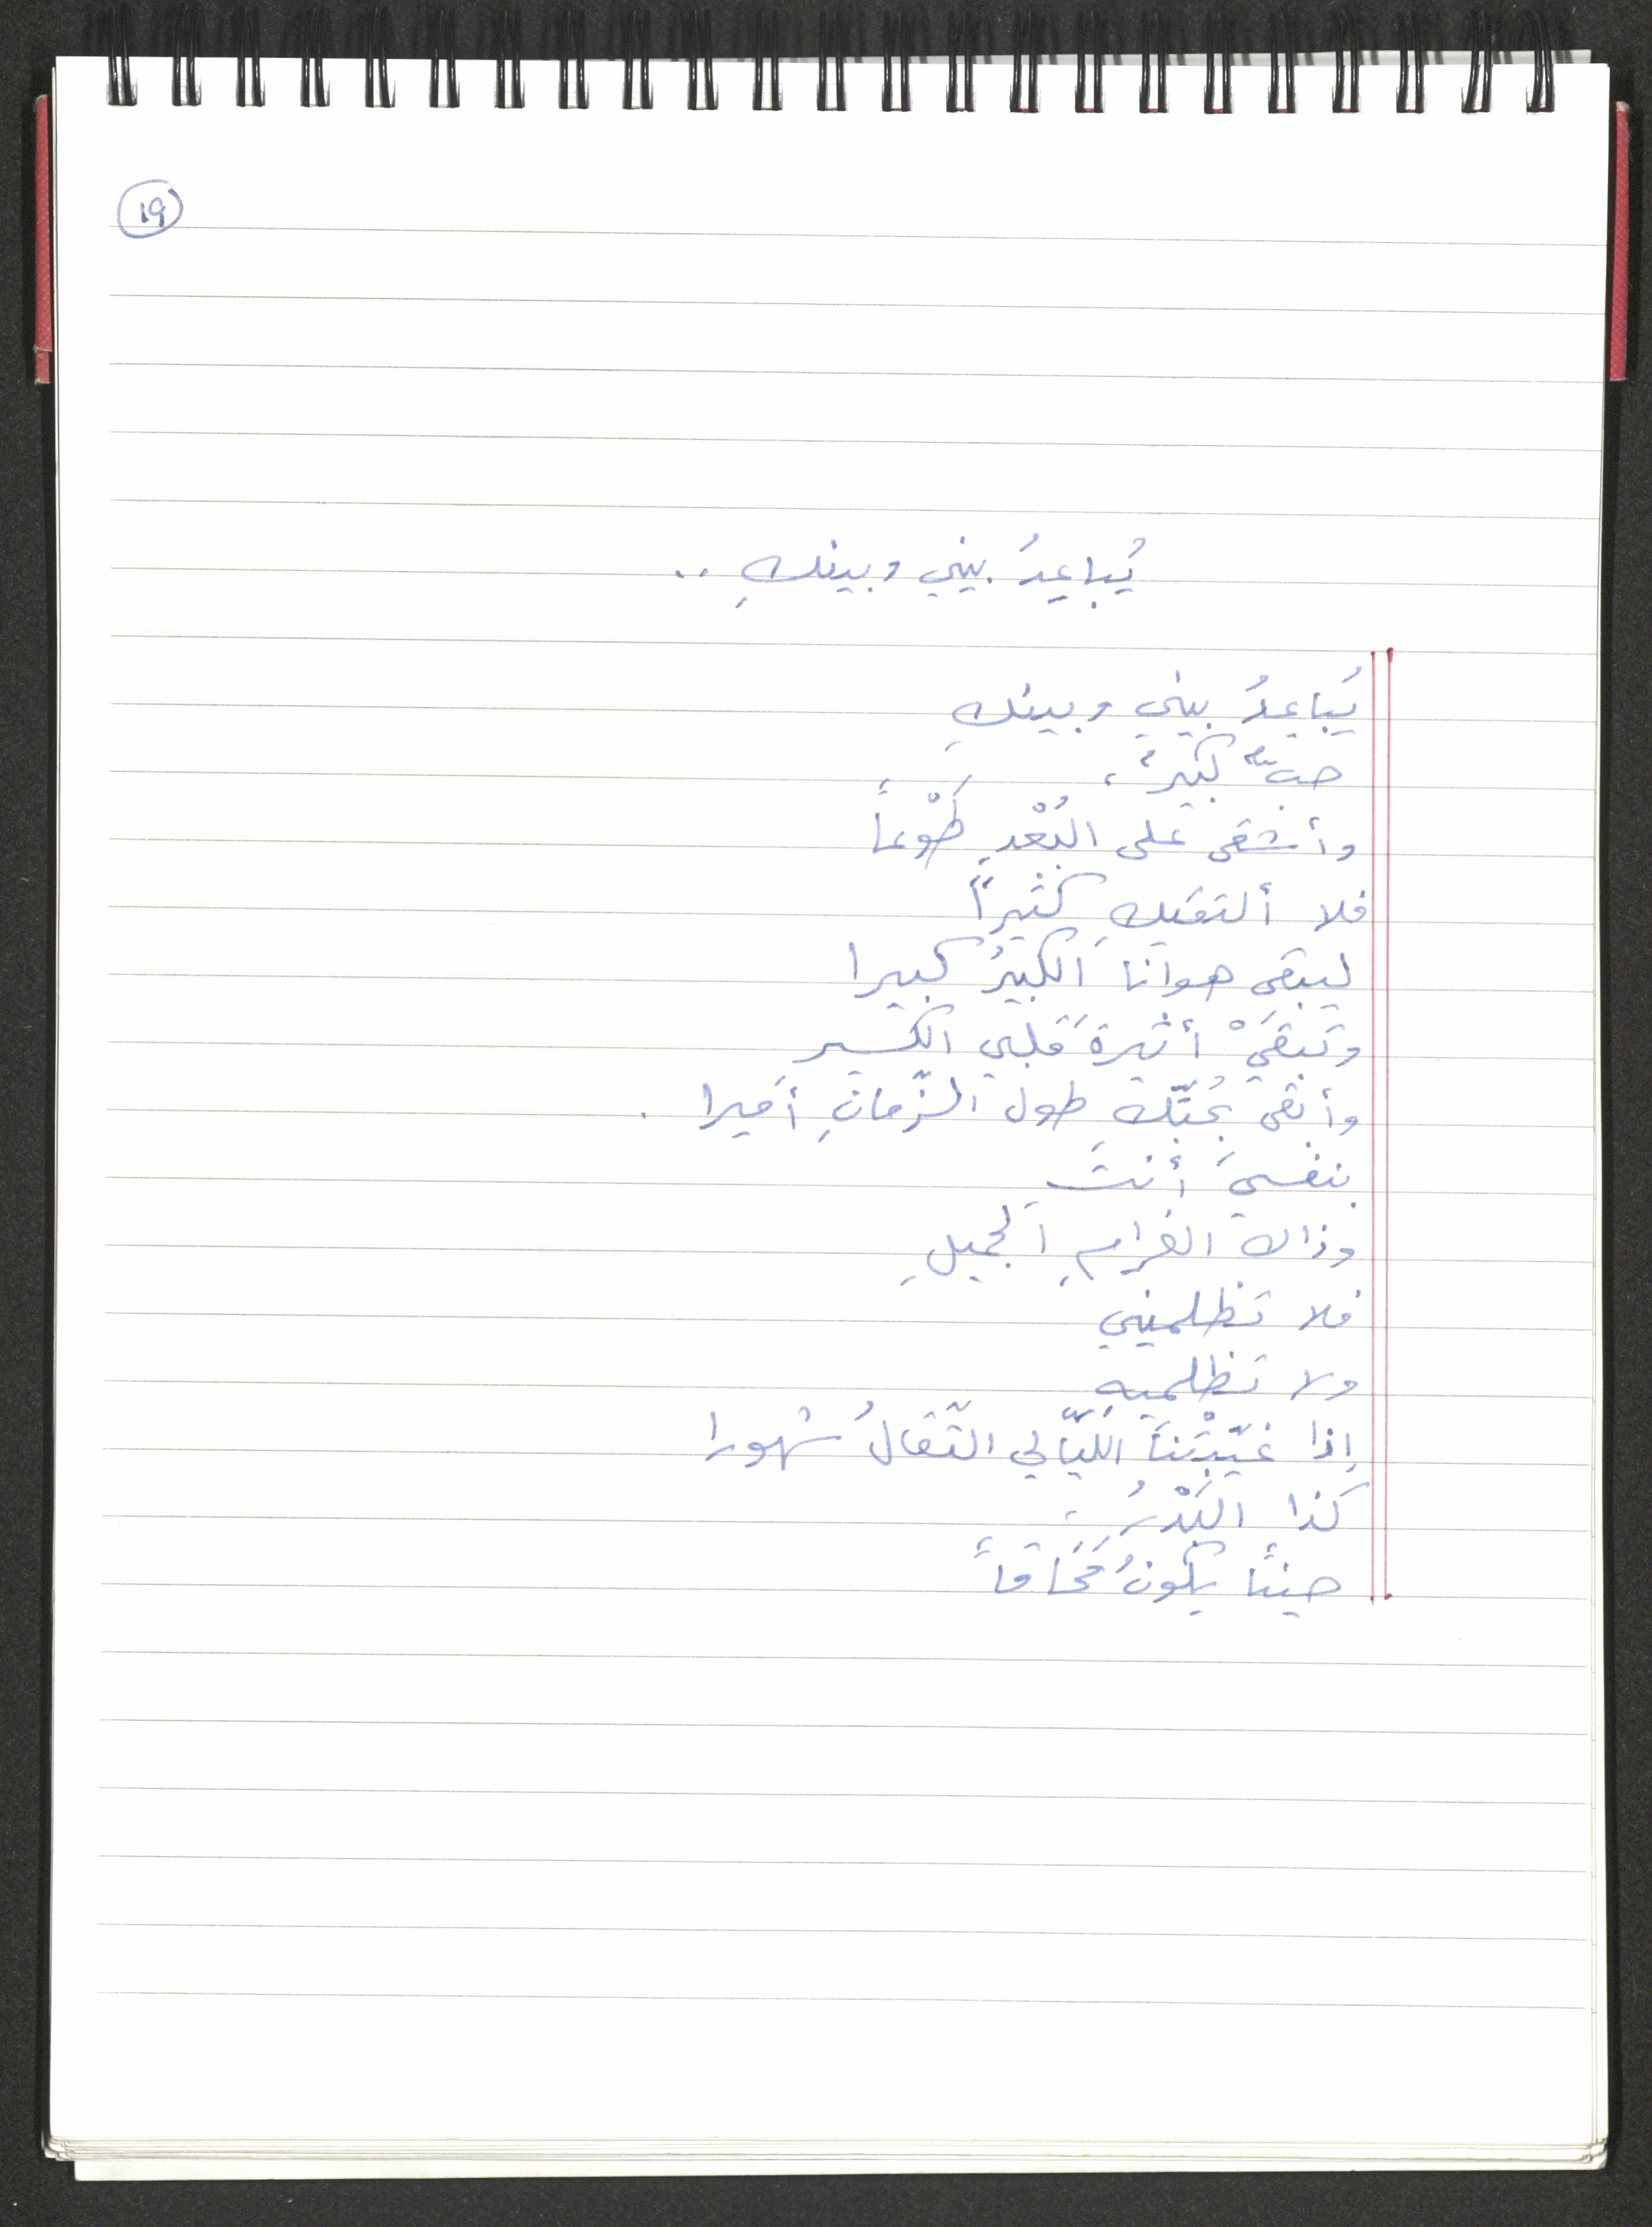 19
يُباعِدُ بيني وبينكِ ..
يُباعِدُ بيني وبينكِ
حبٌّ كبيرٌ ،
وأشقى على البُعْدِ طَوْعاً
فلا ألتقيكِ كثيراً
ليبقى هوانا الكبيرُ كبيرا
وتبقَيْ أثيرةَ قلبي الكسيرِ
وأبقى بحُبّكِ طول الزّمانِ أميرا .
بنفسيَ أنتِ
وذاك الغرامِ الجميلِ
فلا تظلميني
ولا تظلميهِ
إذا غيّبَتْنا اللّيالي الثّقالُ شهورا
كذا البَدْرُ ،
حيناً يكونُ مَحَاقاً